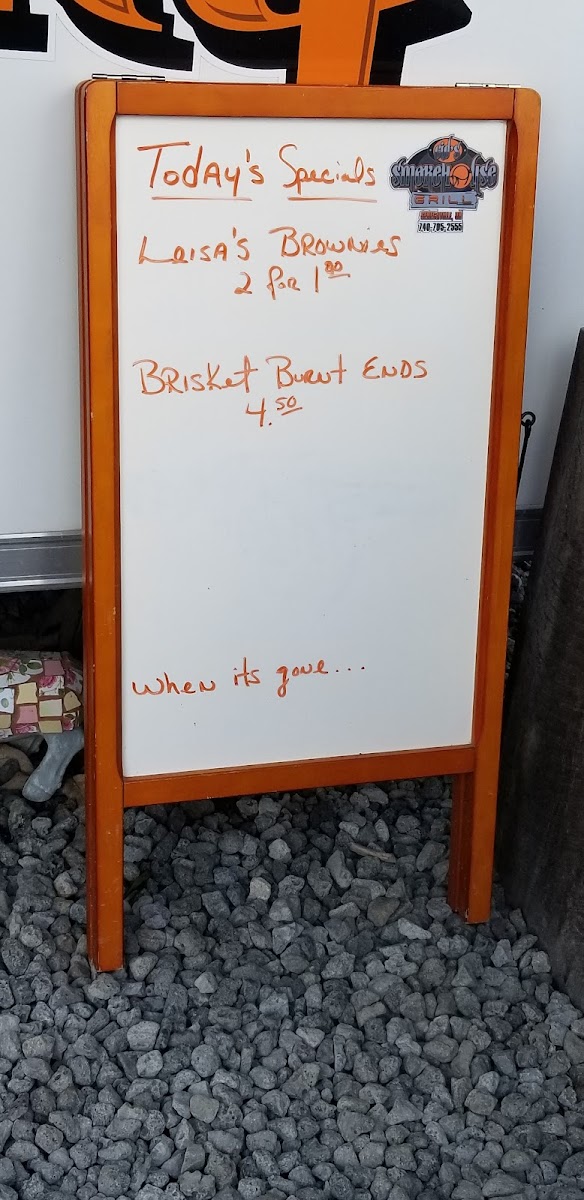 Today's Specials
SMOKEHOUSE
GRILL
740-705-2555
Loisa's Brownies
2 for 1.00
Brisket Burnt Ends
4.50
When its gone...